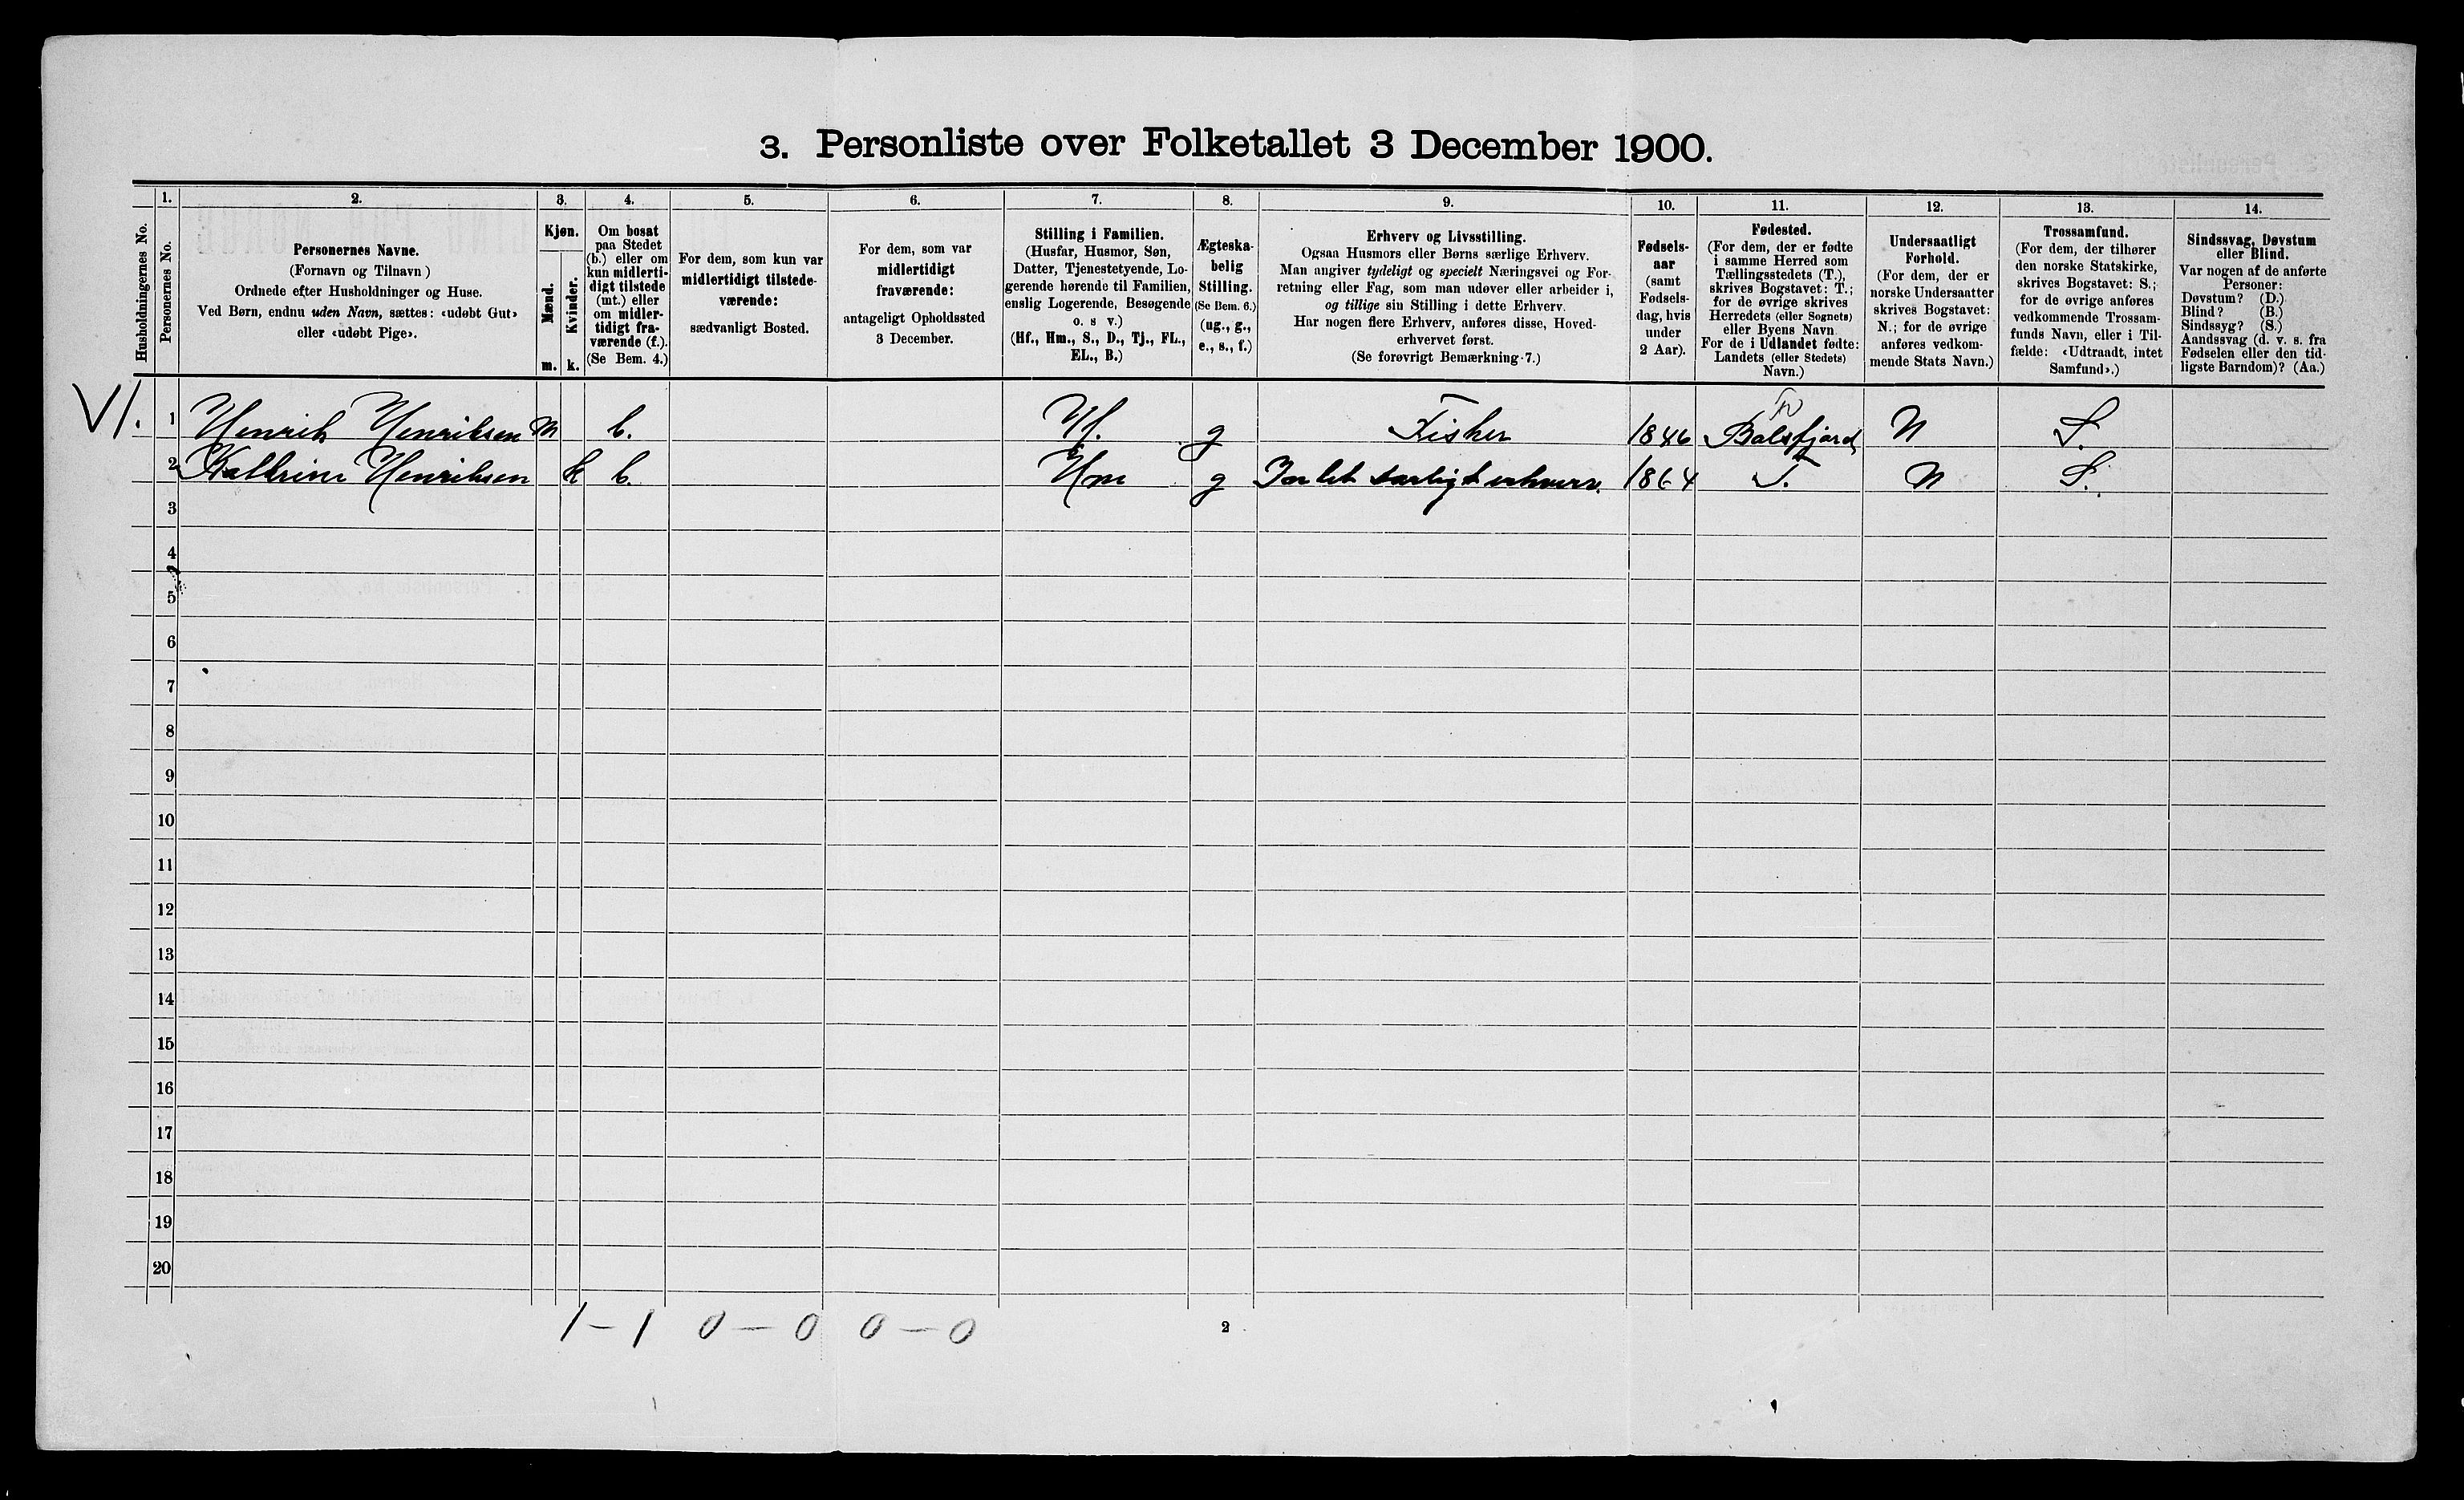 3. Personliste over Folketallet 3 December 1900.
Husholdningernes No.
1.
Personernes No.
2.
Personernes Navne.
(Fornavn og Tilnavn)
Ordnede efter Husholdninger og Huse.
Ved Børn, endnu uden Navn, sættes: «udøbt Gut»
eller «udøbt Pige».
3.
Kjøn.
Mænd.
Kvinder.
m. k.
4.
Om bosat
paa Stedet
(b.) eller om
kun midlerti-
digt tilstede
(mt.) eller
om midler-
tidigt fra-
værende (f.).
(Se Bem. 4.)
5.
For dem, som kun var
midlertidigt tilstede-
værende:
sædvanligt Bosted.
6.
For dem, som var
midlertidigt
fraværende:
antageligt Opholdssted
3 December.
7.
Stilling i Familien.
(Husfar, Husmor, Søn,
Datter, Tjenestetyende, Lo-
gerende hørende til Familien,
enslig Logerende, Besøgende
o. s v.)
(Hf., Hm., S., D., Tj., FL.,
EL., B.)
8.
Ægteska-
belig
Stilling.
(Se Bem. 6.)
(ug., g.,
e., s., f.)
9.
Erhverv og Livsstilling.
Ogsaa Husmors eller Børns særlige Erhverv.
Man angiver tydeligt og specielt Næringsvei og For-
retning eller Fag, som man udøver eller arbeider i,
og tillige sin Stilling i dette Erhverv.
Har nogen flere Erhverv, anføres disse, Hoved-
erhvervet først.
(Se forøvrigt Bemærkning 7.)
10.
Fødsels-
aar
(samt
Fødsels-
dag, hvis
under
2 Aar).
11.
Fødested.
(For dem, der er fødte
i samme Herred som
Tællingsstedets (T.),
skrives Bogstavet: T.;
for de øvrige skrives
Herredets (eller Sognets)
eller Byens Navn.
For de i Udlandet fødte:
Landets (eller Stedets)
Navn.)
12.
Undersaatligt
Forhold.
(For dem, der er
norske Undersaatter
skrives Bogstavet:
N.; for de øvrige
anføres vedkom-
mende Stats Navn.)
13.
Trossamfund.
(For dem, der tilhører
den norske Statskirke,
skrives Bogstavet: S.;
for de øvrige anføres
vedkommende Trossam-
funds Navn, eller i Til-
fælde: «Udtraadt, intet
Samfund».)
14.
Sindssvag, Døvstum
eller Blind.
Var nogen af de anførte
Personer:
Døvstum? (D.)
Blind? (B.)
Sindssyg? (S.)
Aandssvag (d. v. s. fra
Fødselen eller den tid-
ligste Barndom)? (Aa.)
VI. 1 Henrik Henriksen m b. Hf. g Fisker 1846 Balsfjord N S.
2 Kathrine Henriksen k b. Hm g Intet særligt erhverv. 1864 T. N S.
3
4
5
6
7
8
9
10
11
12
13
14
15
16
17
18
19
20
1 – 1 0 – 0 0 – 0
2